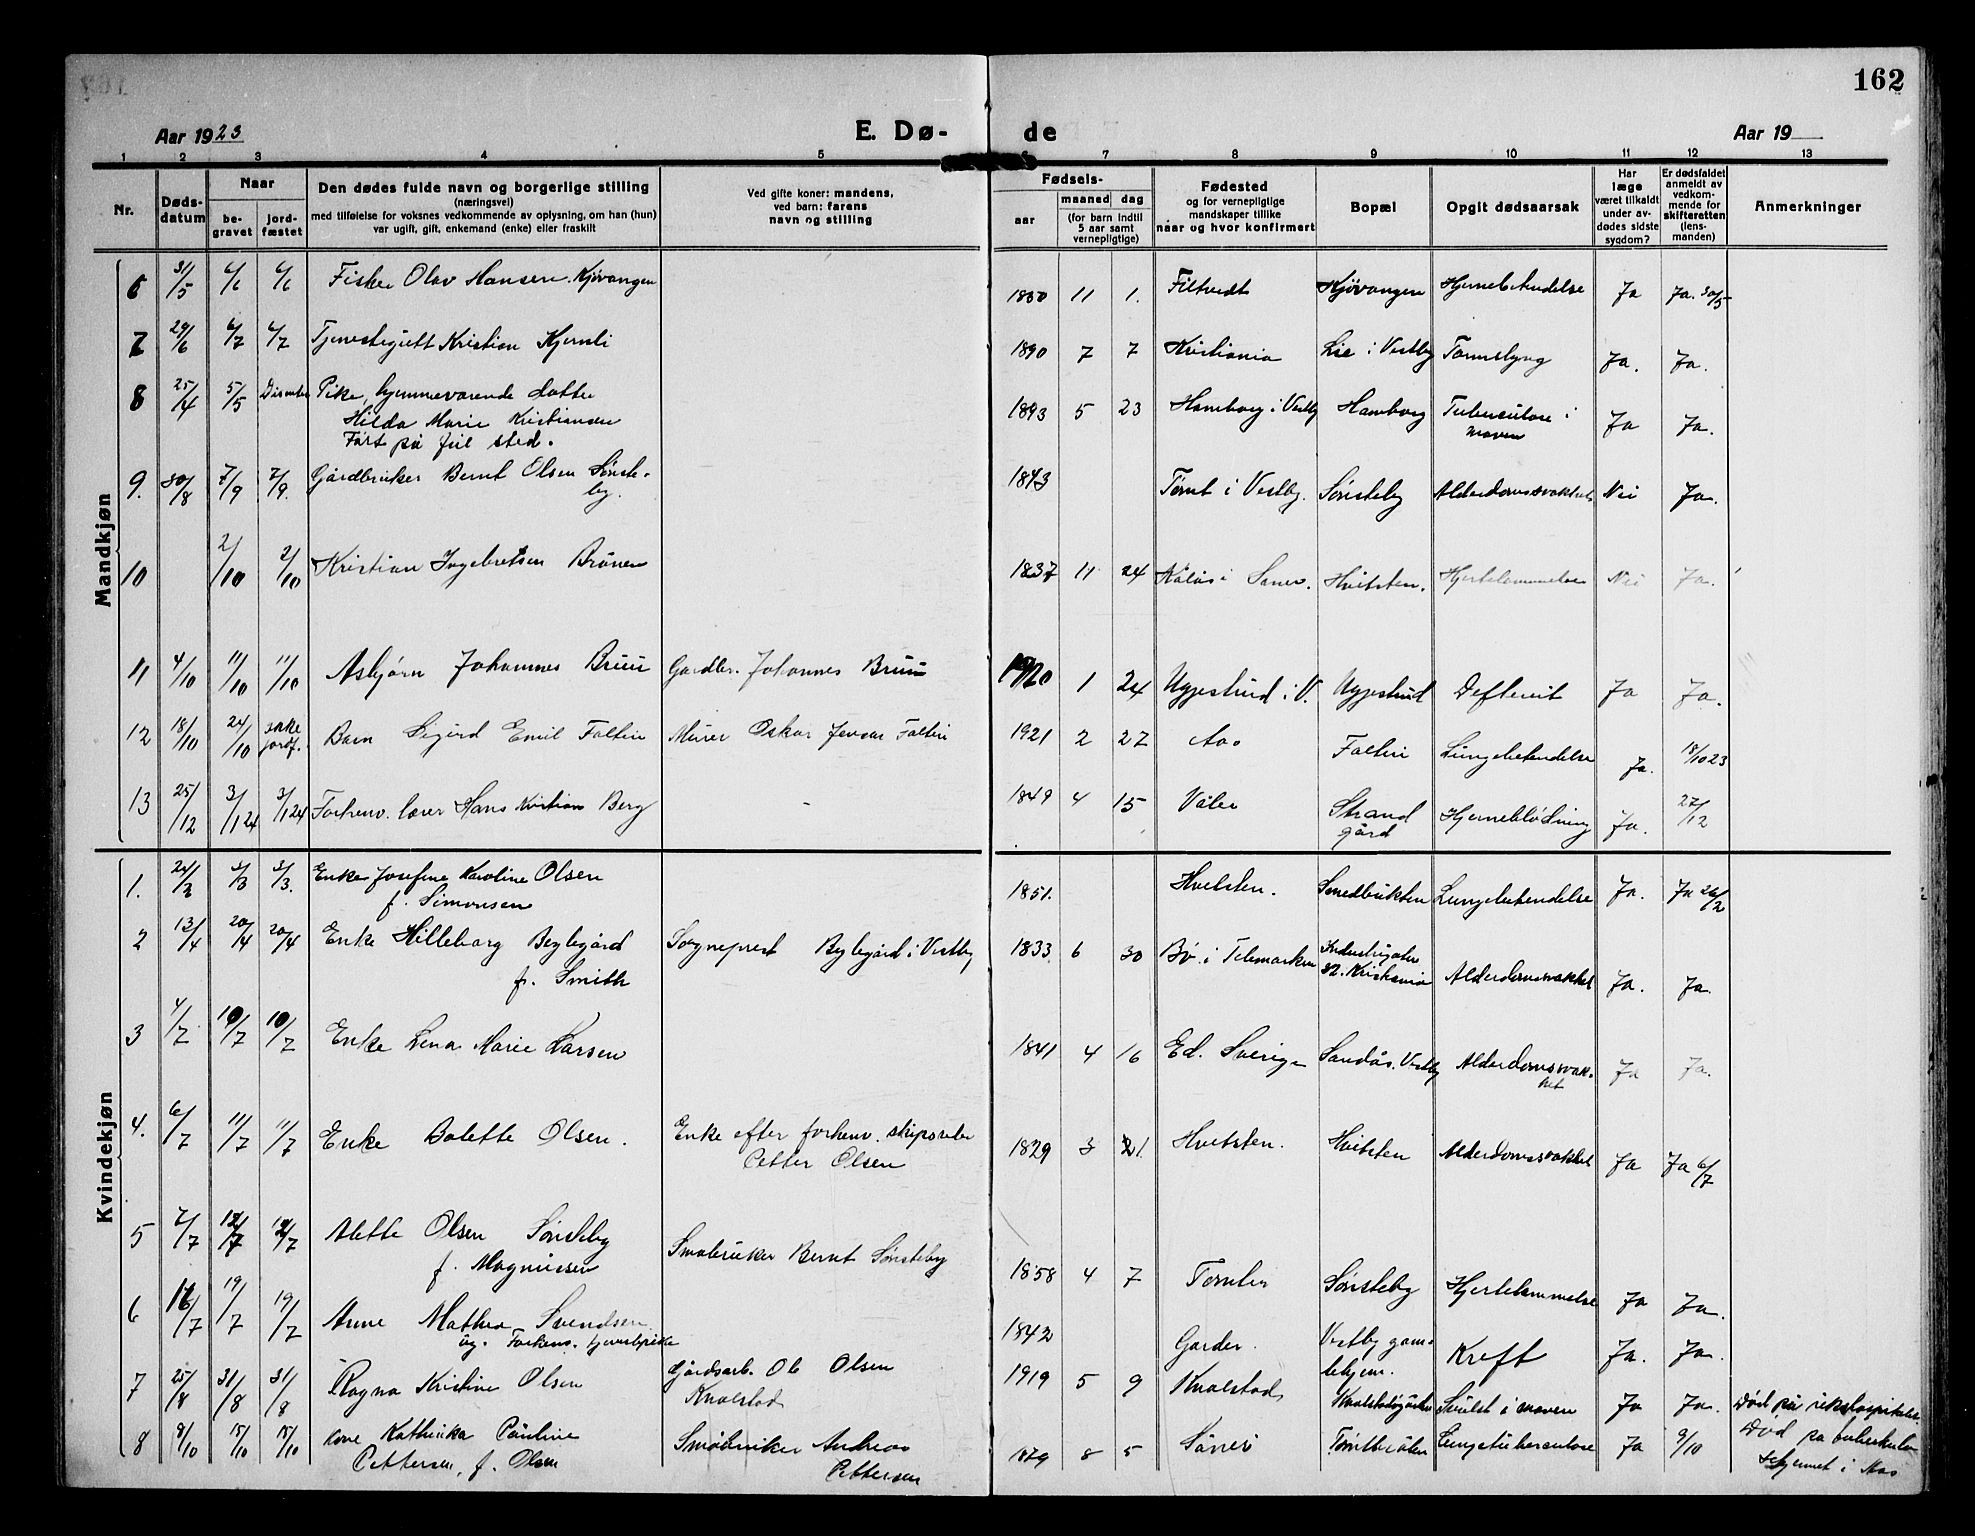 162
Aar 1923
E. Dø-
de
Aar 19
1 2 3 4 5 6 7 8 9 10 11 12 13
Nr.
Døds-
datum
Naar
be-
gravet
jord-
fæstet
Den dødes fulde navn og borgerlige stilling
(næringsvei)
med tilføielse for voksnes vedkommende av oplysning, om han (hun)
var ugift, gift, enkemand (enke) eller fraskilt
Ved gifte koner: mandens,
ved barn: farens
navn og stilling
Fødsels-
aar
maaned dag
(for barn indtil
5 aar samt
vernepligtige)
Fødested
og for vernepligtige
mandskaper tillike
naar og hvor konfirmert
Bopæl
Opgit dødsaarsak
Har
læge
været tilkaldt
under av-
dødes sidste
sygdom?
Er dødsfaldet
anmeldt av
vedkom-
mende for
skifteretten
(lens-
manden)
Anmerkninger
Mandkjøn
6 31/5 6/6 6/6 Fisker Olav Hansen. Kjøvangen 1850 11 1. Filtvedt Kjøvangen Hjernebetendelse Ja Ja. 30/5
7 29/6 6/7 6/7 Tjenestegutt Kristian Kjernli 1890 7 7 Kristiania Lie i Vestby Ja. Ja.
8 25/4 5/5 Pike, hjemmeværende datter 1893 5 23 Hamborg i Vestby Hamborg Tuberculose i
Hilda Marie Kristiansen maven Ja Ja.
Ført på feil sted.
9. 30/8 7/9 7/9. Gårdbruker Bernt Olsen Sønste-
by. 1843 Tømt i Vestby. Sønsteby Alderdomssvakhet Nei Ja.
10 2/10 2/10 Kristian Ingebretsen Brønen 1837 11 24 i Saner. Hvitsten. Hjertelammelse Nei Ja.
11 4/10 11/10 11/10 Asbjørn Johannes Bruu Gardbr. Johannes Bruu 1920 1 24 Uggestrud i V. Uggestrud Difterit Ja Ja.
12 18/10 24/10 ikke
jordf. Barn Sigurd Emil Faltin Murer Oskar Jensen Faltin 1921 2 27 Aas Faltin Lungebetendelse Ja. 18/10 23
13 25/12 3/1 24 3/1 24 Forhenv. lærer Hans Kristian Berg 1849 4 15 Våler Strand
gård Hjerneblødning Ja. 27/12
Kvindekjøn
1. 24/2 3/3 3/3. Enke Josefine Karoline Olsen
f. Simonsen 1851. Hvitsten. Smedbukten Lungebetendelse Ja. Ja 26/2
2 12/4 20/4 20/4 Enke Hilleborg Beglegård
f. Smith Sogneprest Beglegård i Vestby 1833 6 30 Bø i Telemarken Industrigaten
Kristiania Alderdomssvakhet Ja. Ja.
3 4/7 10/7 10/7 Enke Lena Marie Larsen 1841 4 16 Ed. Sverige Sandås. Vestby Alderdomssvak-
het Ja Ja.
4. 6/7 11/7 11/7 Enke Bolette Olsen. Enke efter forhenv. skipsreder
Petter Olsen 1829 3 21. Hvitsten. Hvitsten Alderdomssvakhet Ja Ja 6/7
5 7/7 12/7 12/7 Alette Olsen Sønsteby
f. Magnussen Småbruker Bernt Sønsteby 1858 4 7 Tomter Sønsteby Hjertelammelse Ja Ja.
6 16/7 19/7 19/7 Anne Mathea Svendsen
ug. Forhenv. tjenestepike 1842 Garder. Vestby gam-
lehjem. Kreft Ja. Ja.
7 25/8 31/8 31/8 Ragna Kristine Olsen Gårdsarb. Ole Olsen
Knalstad 1919 5 9 Knalstad Knalstadgården Svulst i maven Ja Ja. Død på rikshospitalet
8 9/10 15/10 15/10 Kone Kathinka Pauline
Pettersen, f. Olsen Småbruker Andreas
Pettersen 1879 8 5 Såner Lungetuberculose Ja 9/10 Død på tuberkulo
sehjemmet i Mos